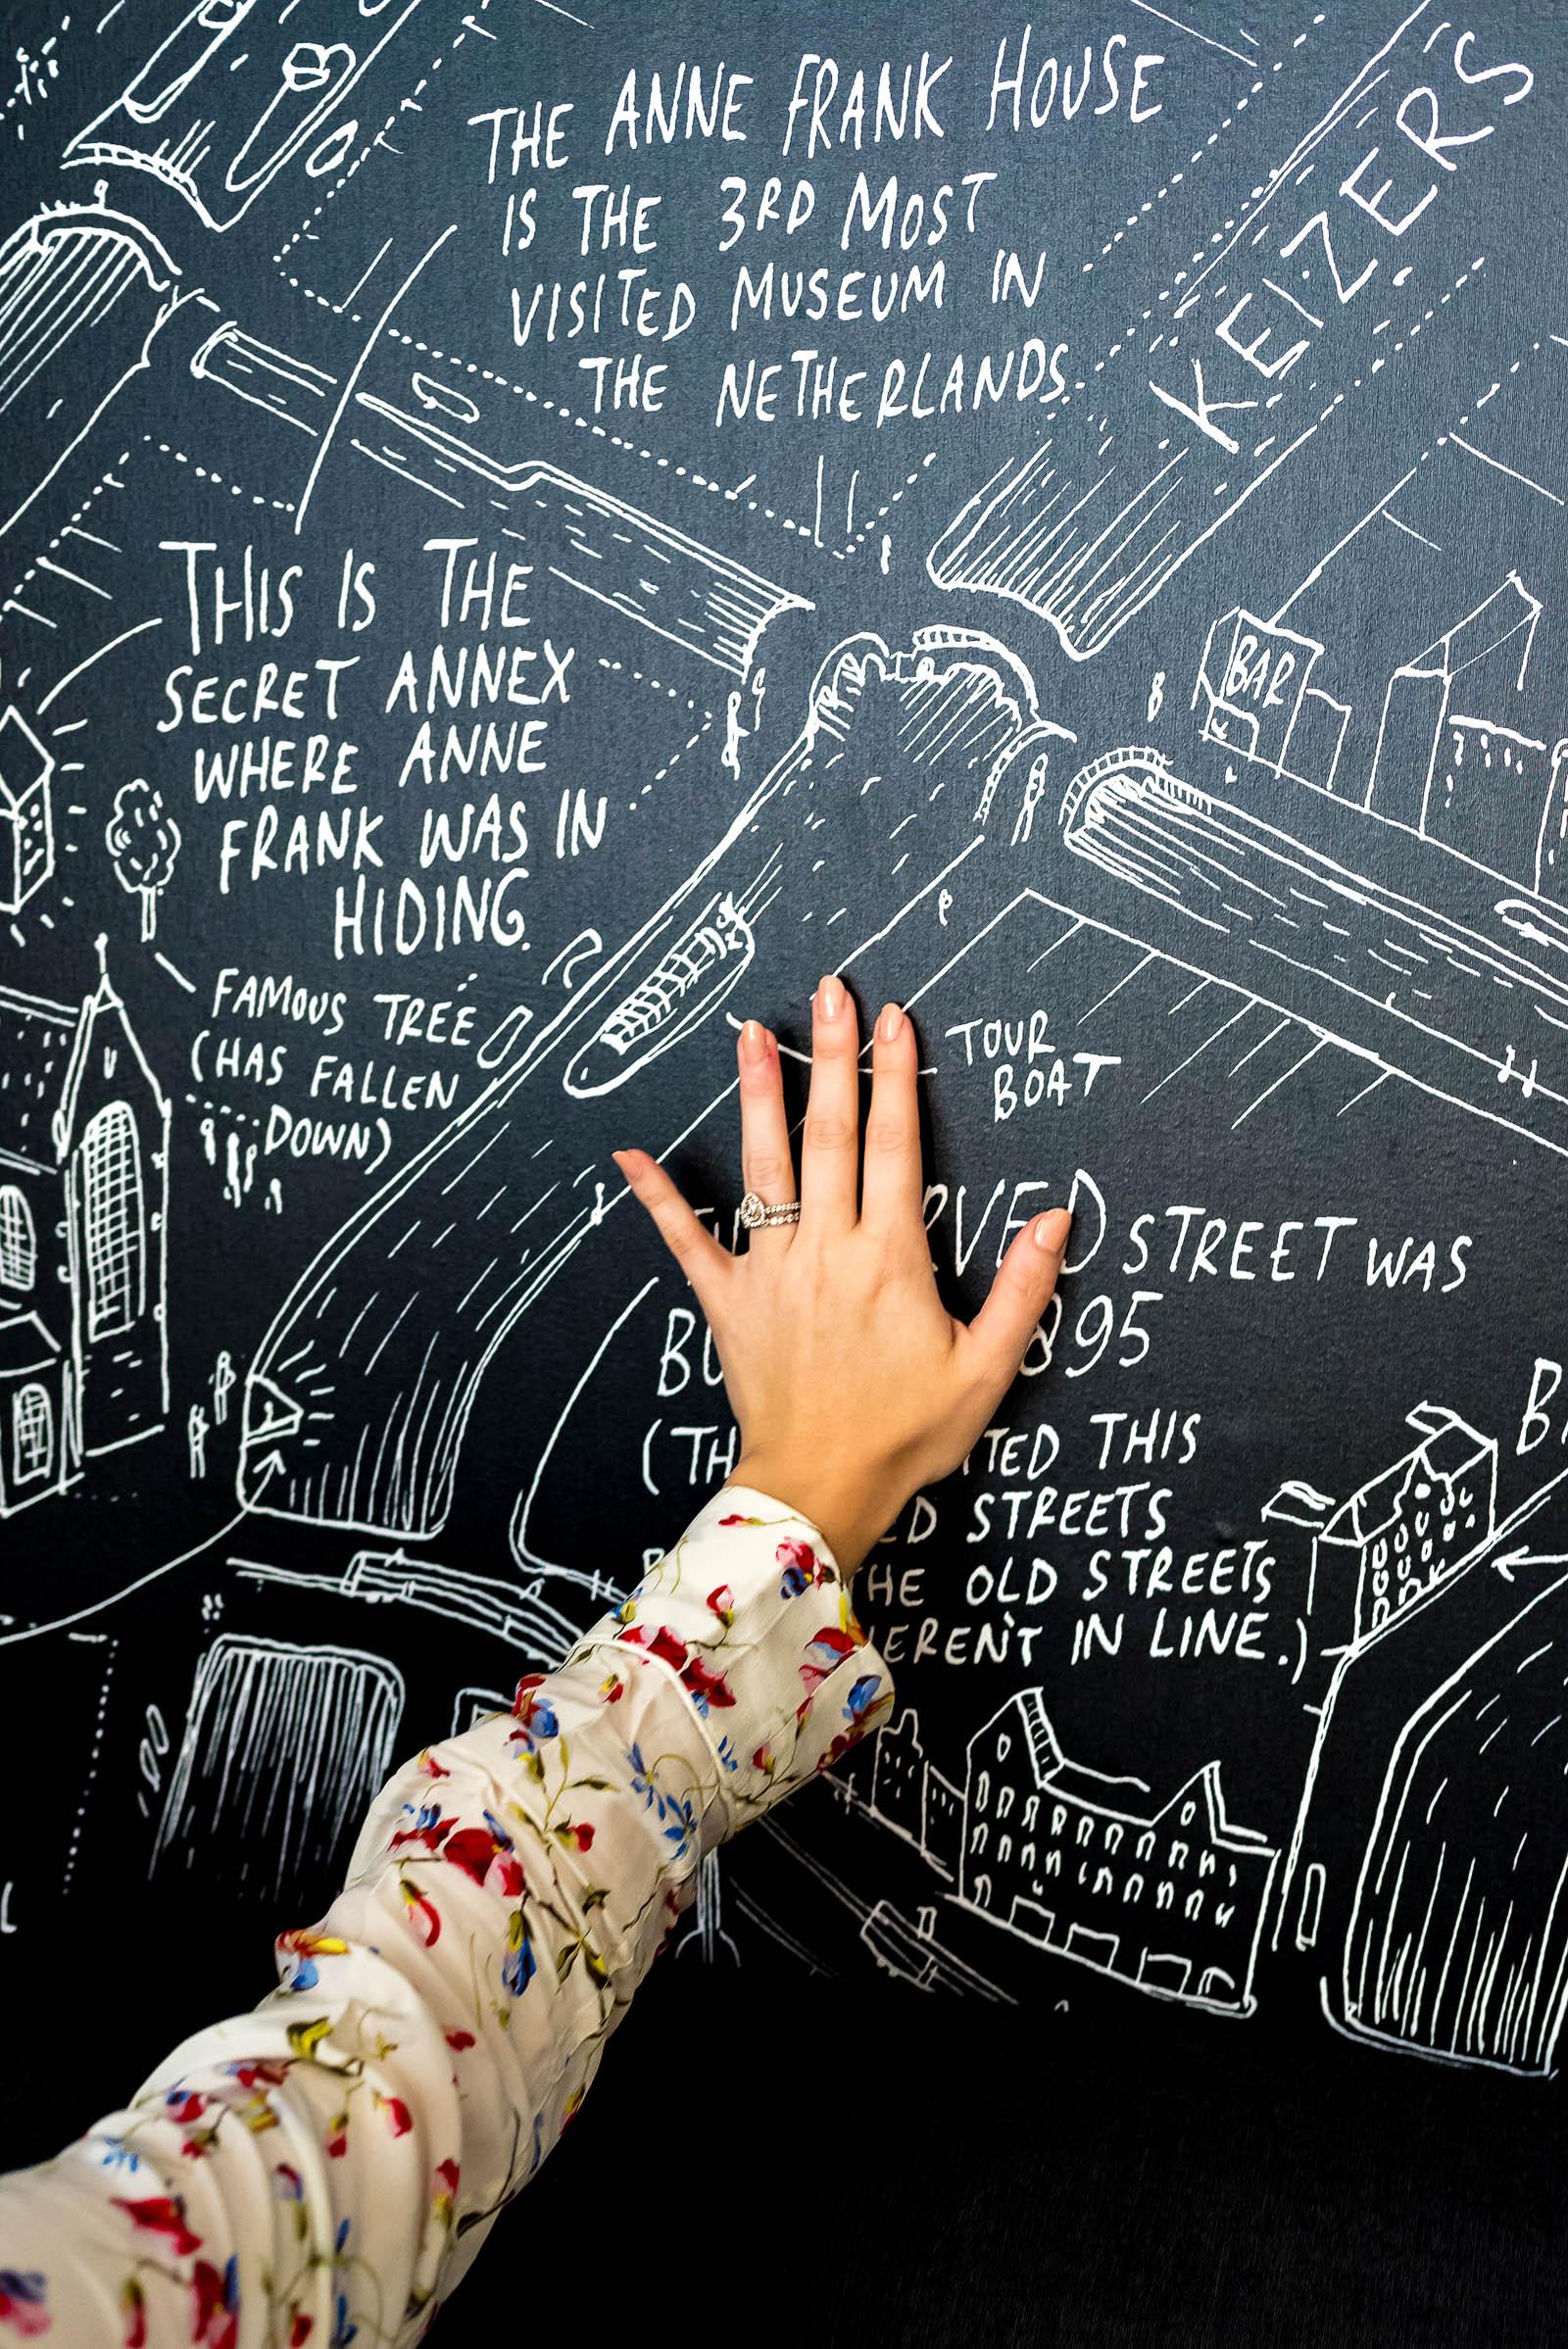 THE ANNE FRANK HOUSE
IS THE 3RD MOST
VISITED MUSEUM IN
THE NETHERLANDS.
KEIZERS
THIS IS THE
SECRET ANNEX
WHERE ANNE
FRANK WAS IN
HIDING.
BAR
FAMOUS TREE
(HAS FALLEN
DOWN)
TOUR
BOAT
STREET WAS
95
THIS
STREETS
OLD STREETS
IN LINE.)